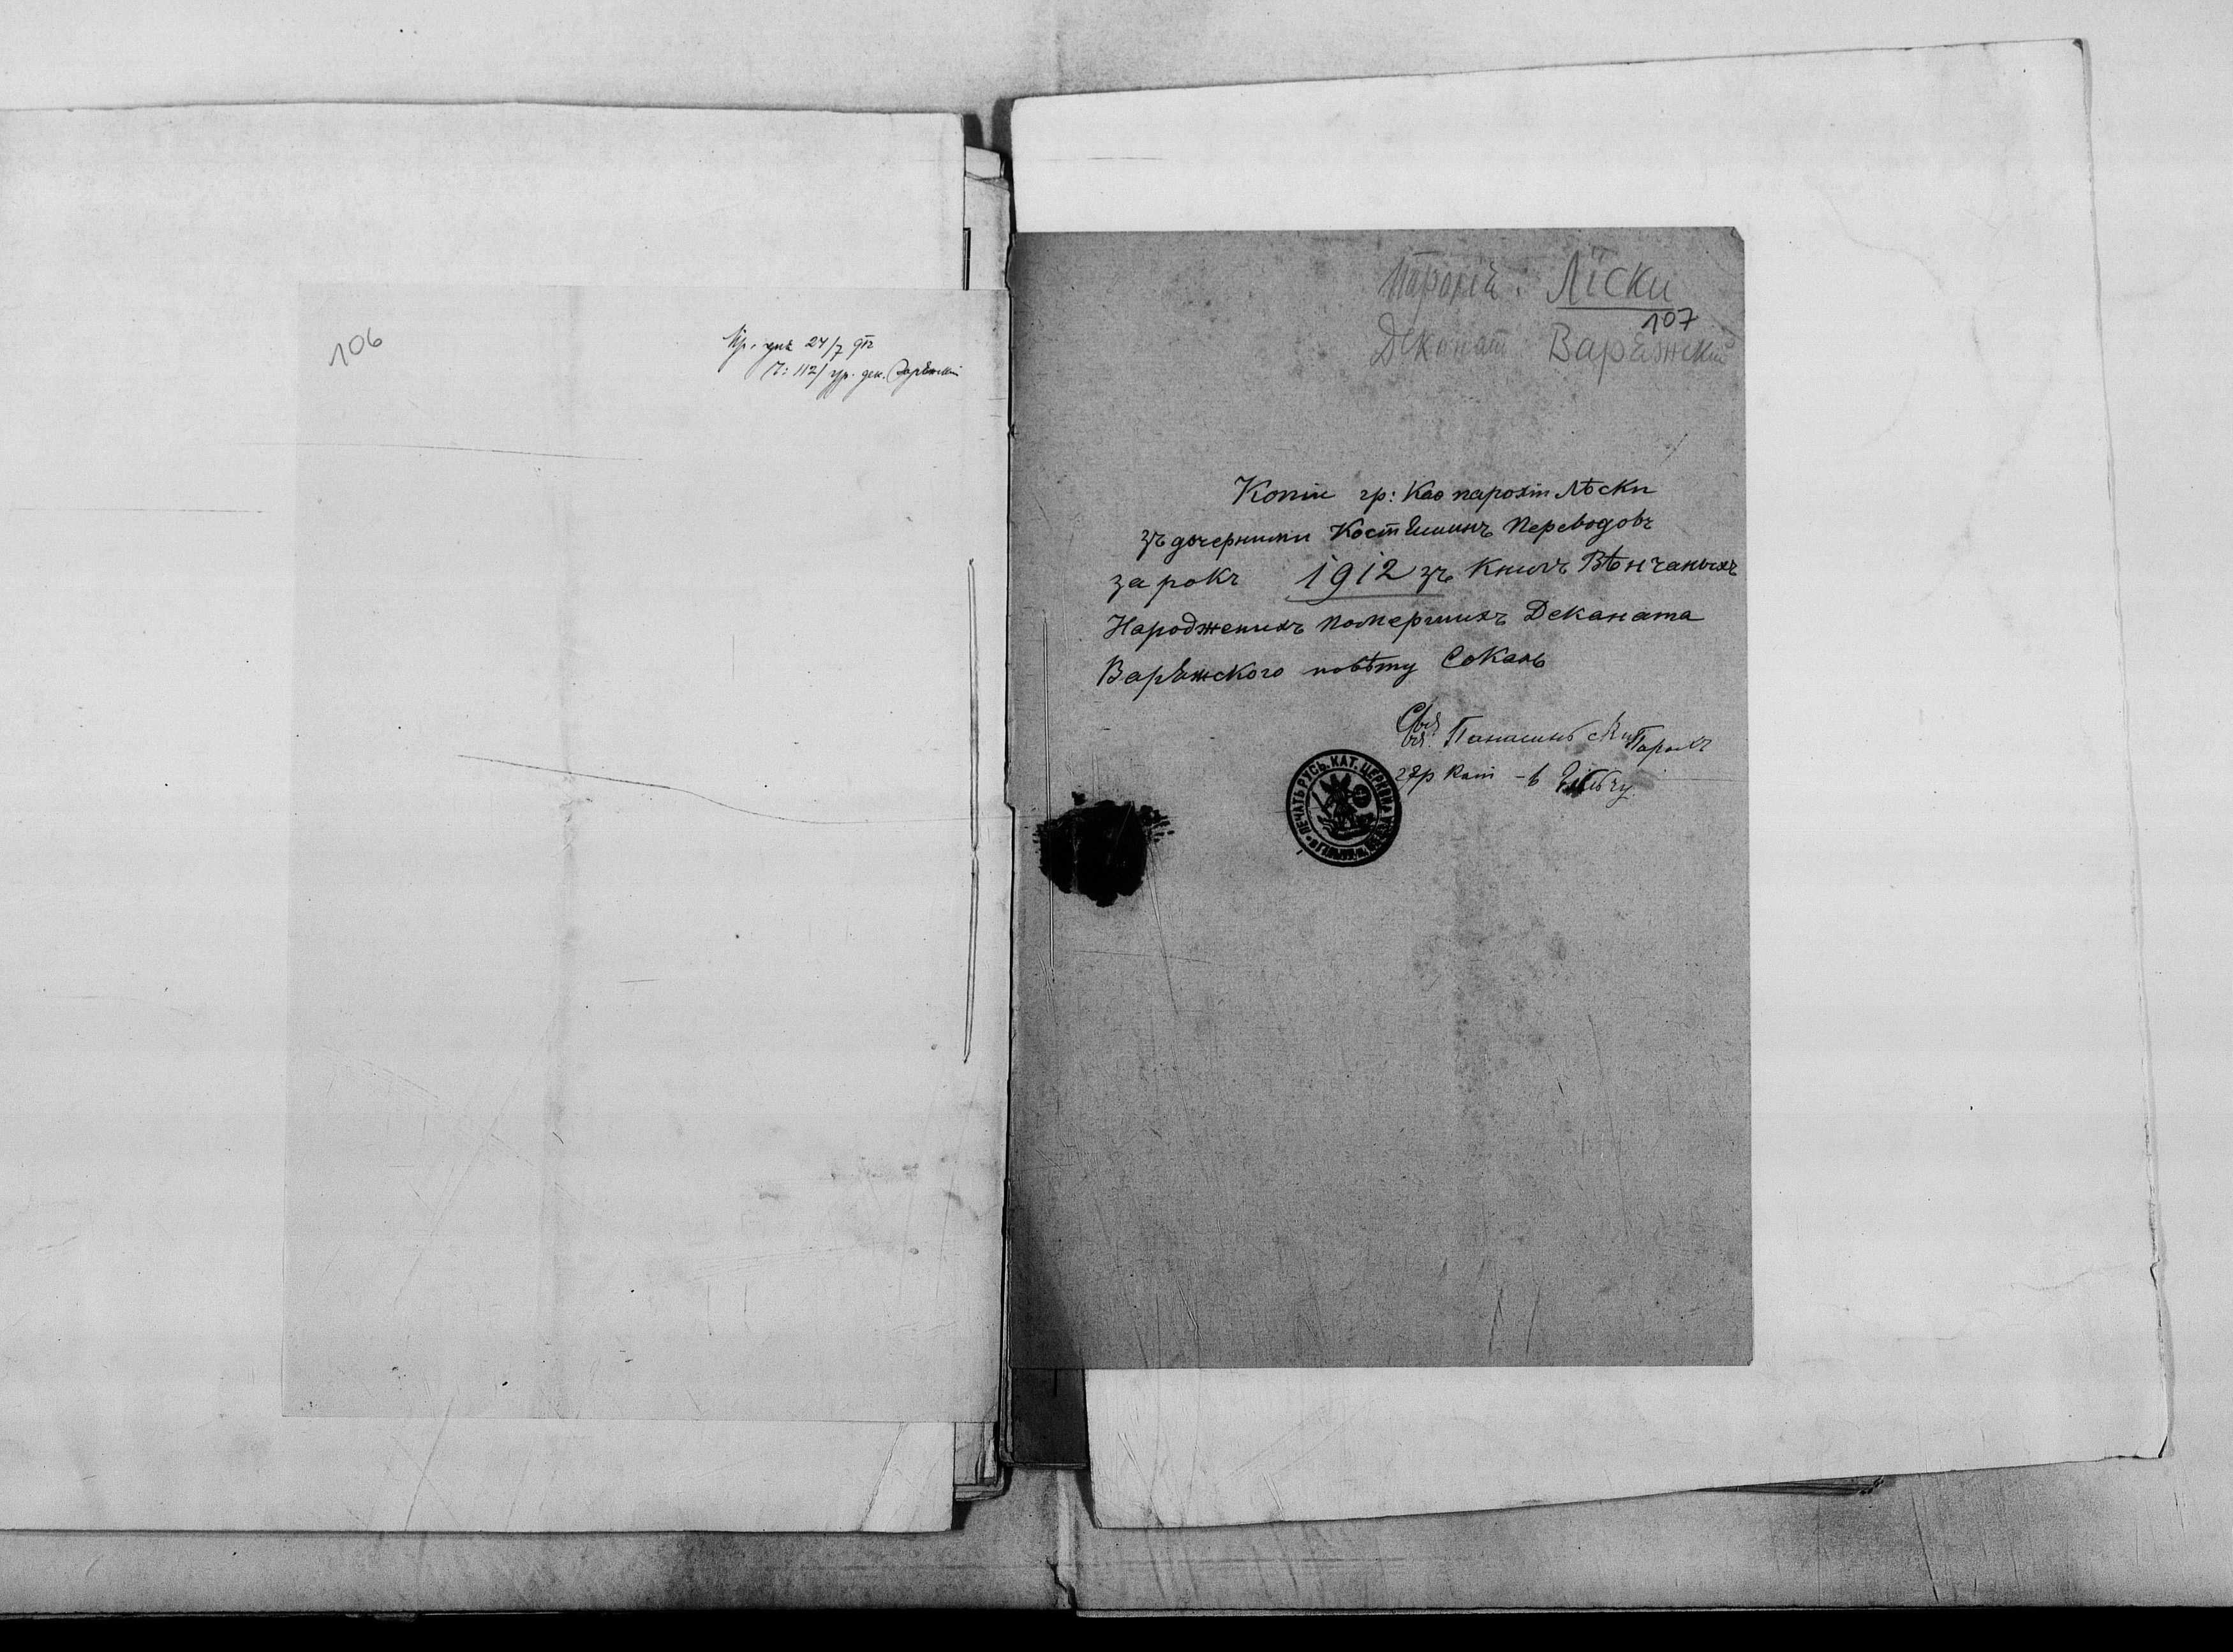 106
Пр. дня 24/7 912
Ч: 112/ ур. дек. Варяжскій
Парохія: Лїски
107
Деканат Варяжскій
Копія гр: Као парохіи Лѣски
зъ дочерними Костяшинъ Переводовъ
за рокъ 1912 зъ Книгъ Вѣнчаныхъ
Народженихъ Помершихъ Деканата
Варяжского повѣту Сокаль
Парохъ
гр кат - в
ПЕЧАТЬ РУСЬ. КАТ. ЦЕРКОВ.